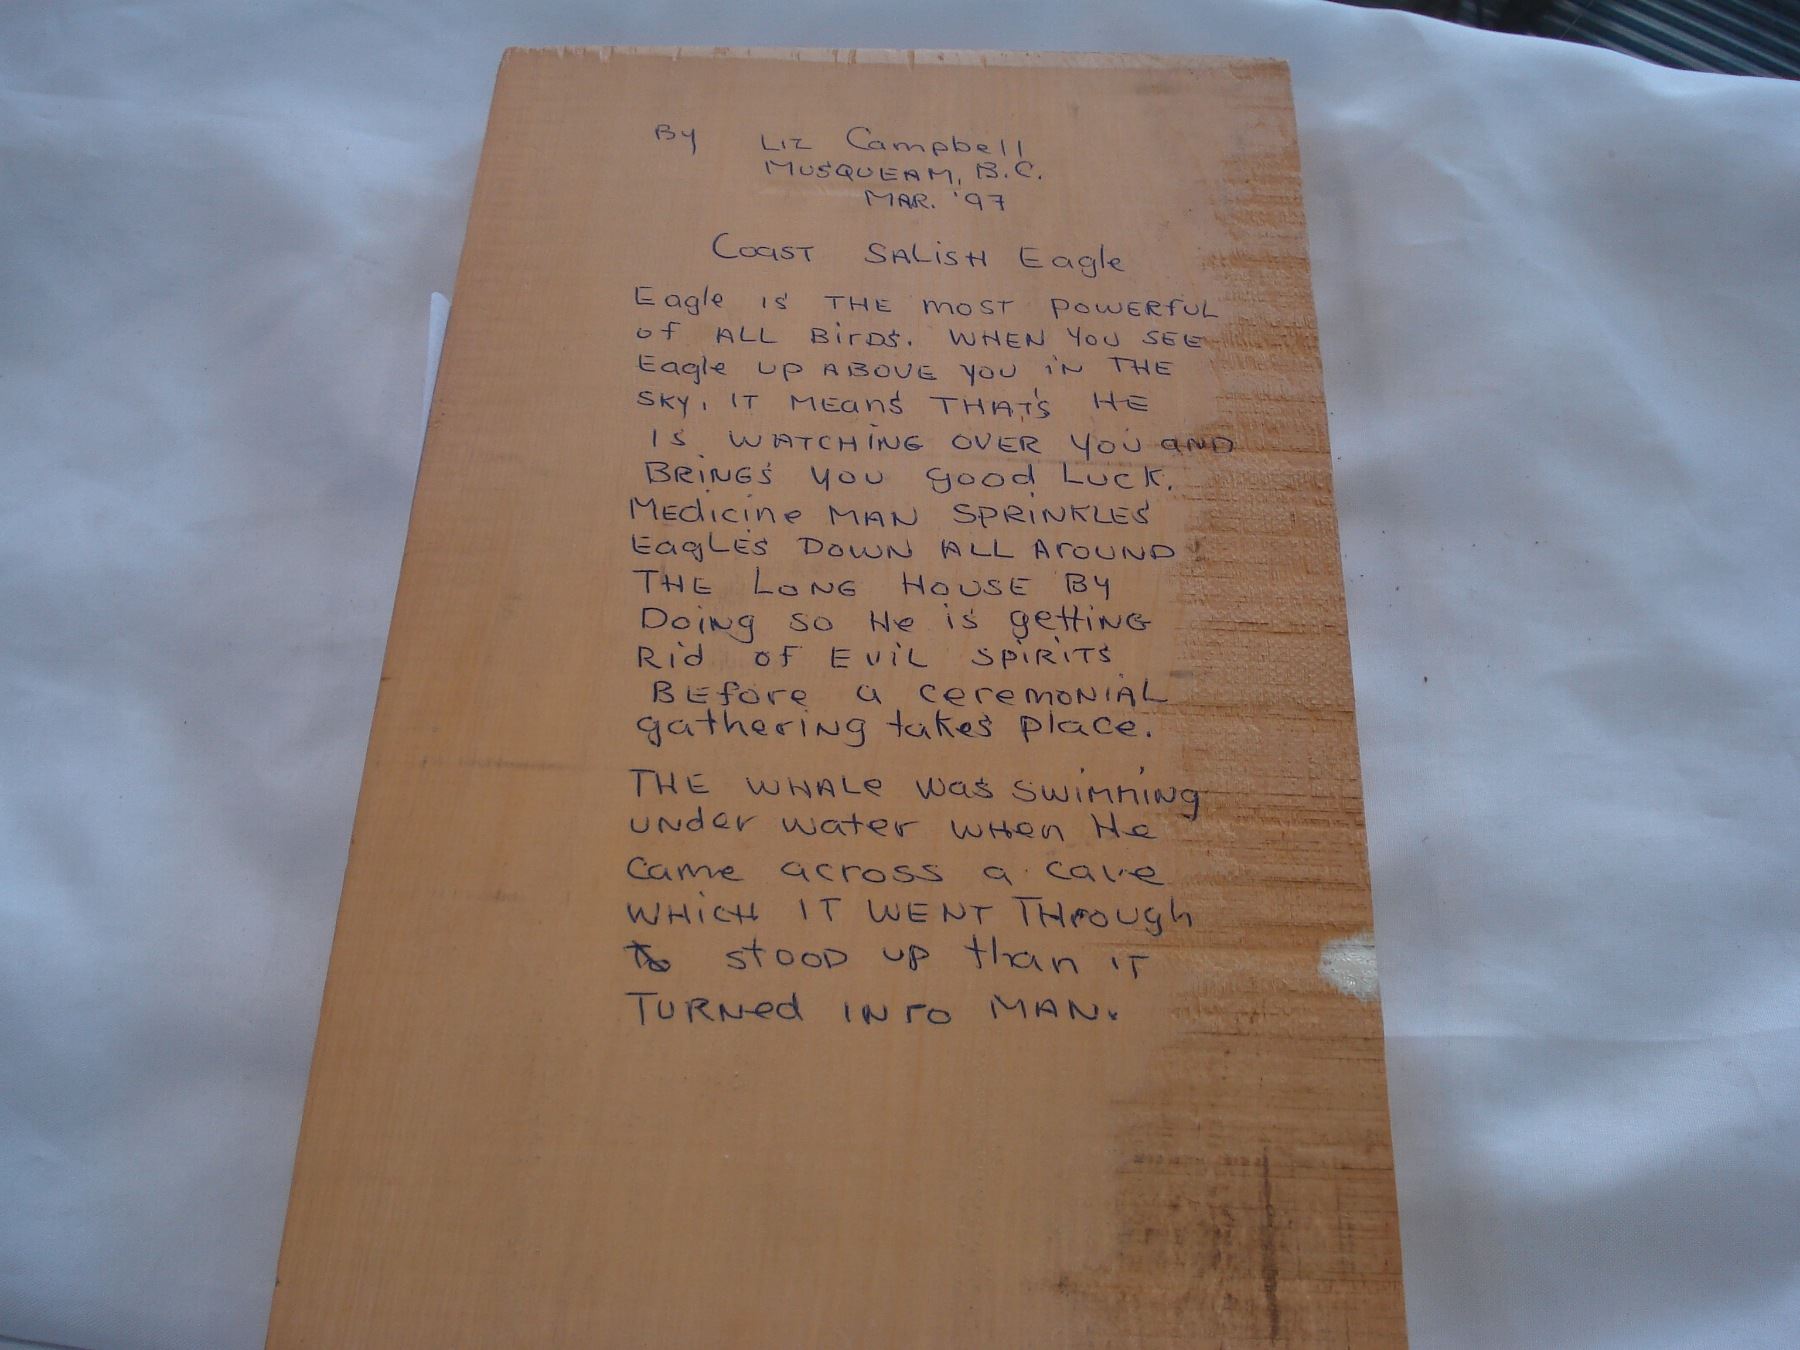 By Liz Campbell
MUSQUEAM, B.C.
MAR. '97
Coast SALisH Eagle
Eagle is THE most POWERfUL
of ALL BirDs. WHEN you SEE
Eagle up ABOVE you iN THE
SKy, IT MEans THAT'S HE
IS WATCHING OVER you aND
BRiNGs you good Luck.
MEdicine MAN SPRiNKLES
EagLES DOWN ALL ArOUND
THE LONG HOUSE By
DoiNg so He is gettiNG
Rid of EViL SPiRiTS
BEfore a ceremONiAL
gatheriNg takes place.
THE WHALe was swimming
uNder water wHen He
came across a cave
WHicH IT WENT THrOUgh
stOOD up than iT
TURNed INTO MAN.